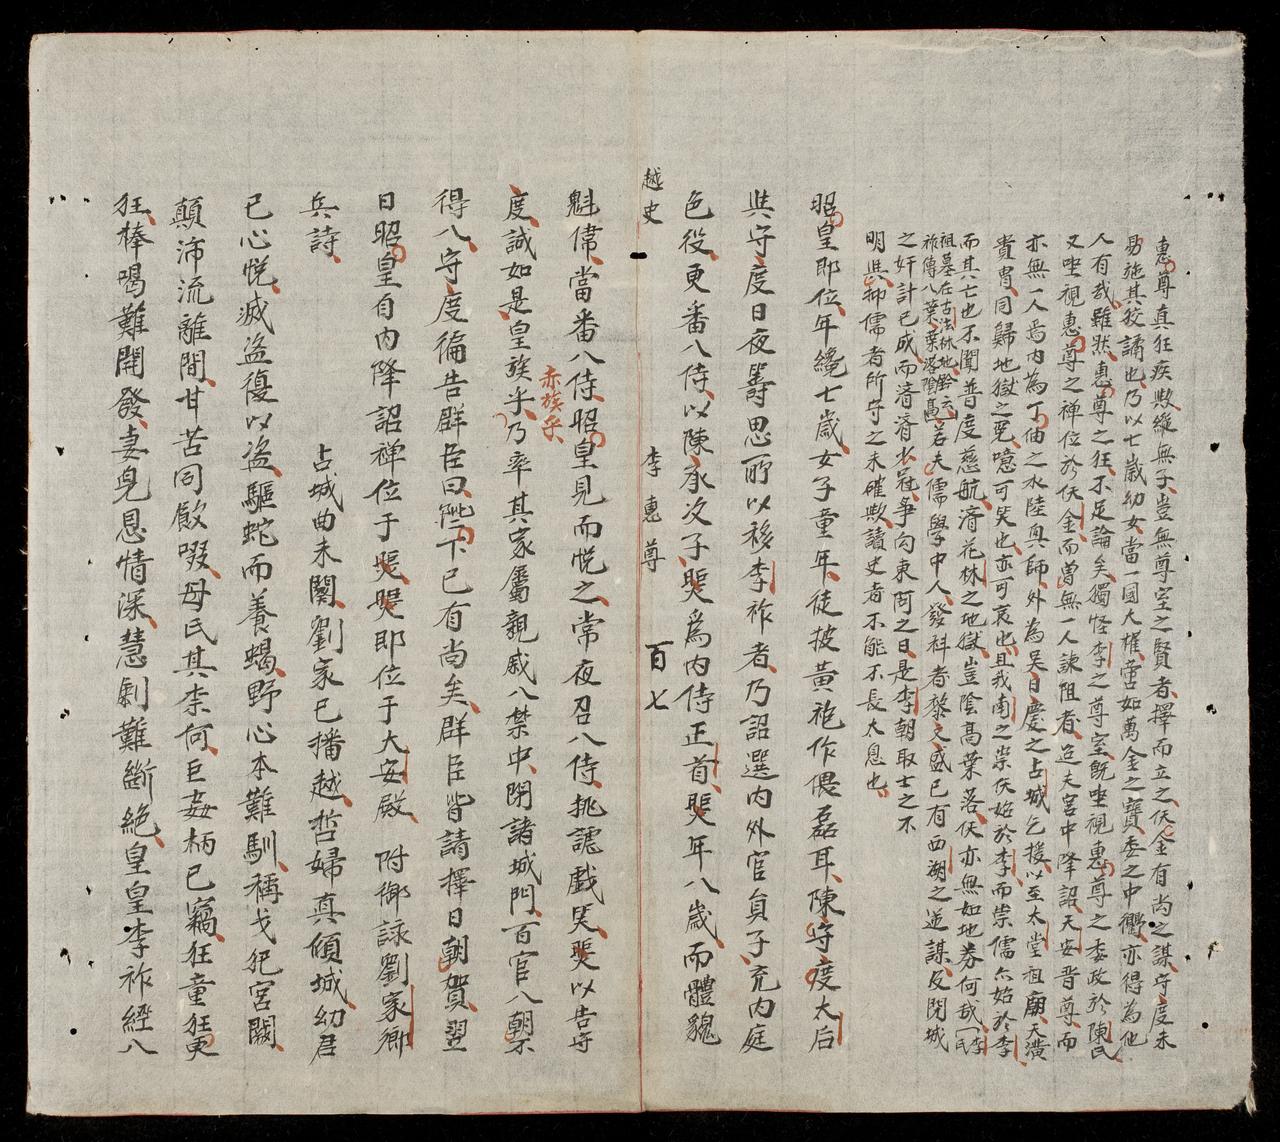 惠尊真狂疾欺縱無子豈無尊室之賢者擇而立之伏金有尚之謀守度未
易施其狡譎也乃以七歲幼女當一國大權啻如萬金之寶委之中衢亦得為他
人有哉雖然惠尊之狂不足論矣獨怪李之尊室既坐視惠尊之委政於陳氏
又坐視惠尊之禪位於伏金而曾無一人諫阻者迨夫宮中降詔天安晉尊而
亦無一人焉內為丁伷之水陸與師外為吳日慶之占城乞援以至太堂祖廟天潢
貴胄同歸地獄之冤噫可笑也亦可哀也且我南之崇伏始於李而崇儒亦始於李
而其亡也不聞普度慈航濟花林之地獄豈陰高葉落伏亦無如地券何哉李氏
祖墓在古法林地鈐云
祚傳八葉葉落陰高若夫儒學中人發科者黎文盛已有西湖之逆謀及閉城
之奸計已成而濟濟少冠爭向東阿之日是李朝取士之不
明與抑儒者所守之未確歟讀史者不能不長太息也
昭皇即位年纔七歲女子童年徒披黃袍作偎磊耳陳守度太后
與守度日夜籌思所以移李祚者乃詔選內外官員子充內庭
色役更番入侍以陳承次子煚爲內侍正首煚年八歲而體貌
越史 李惠尊 百七
魁偉當番入侍昭皇見而悅之常夜召入侍挑謔戲笑煚以告守
赤族乎
度誠如是皇族乎乃率其家屬親戚入禁中閉諸城門百官入朝不
得入守度徧告群臣曰陛下已有尚矣群臣皆請擇日朝賀翌
日昭皇自內降詔禪位于煚煚即位于大安殿 附鄉詠劉家卿
兵詩 占城曲未闋劉家已播越哲婦真傾城幼君
已心悅滅盜復以盜驅蛇而養蝎野心本難馴稱戈犯宮闕
顛沛流離間甘苦同飲啜母氏其柰何巨姦柄已竊狂童狂更
狂棒喝難開發妻皃恩情深慧劍難斷絕皇皇李祚經八